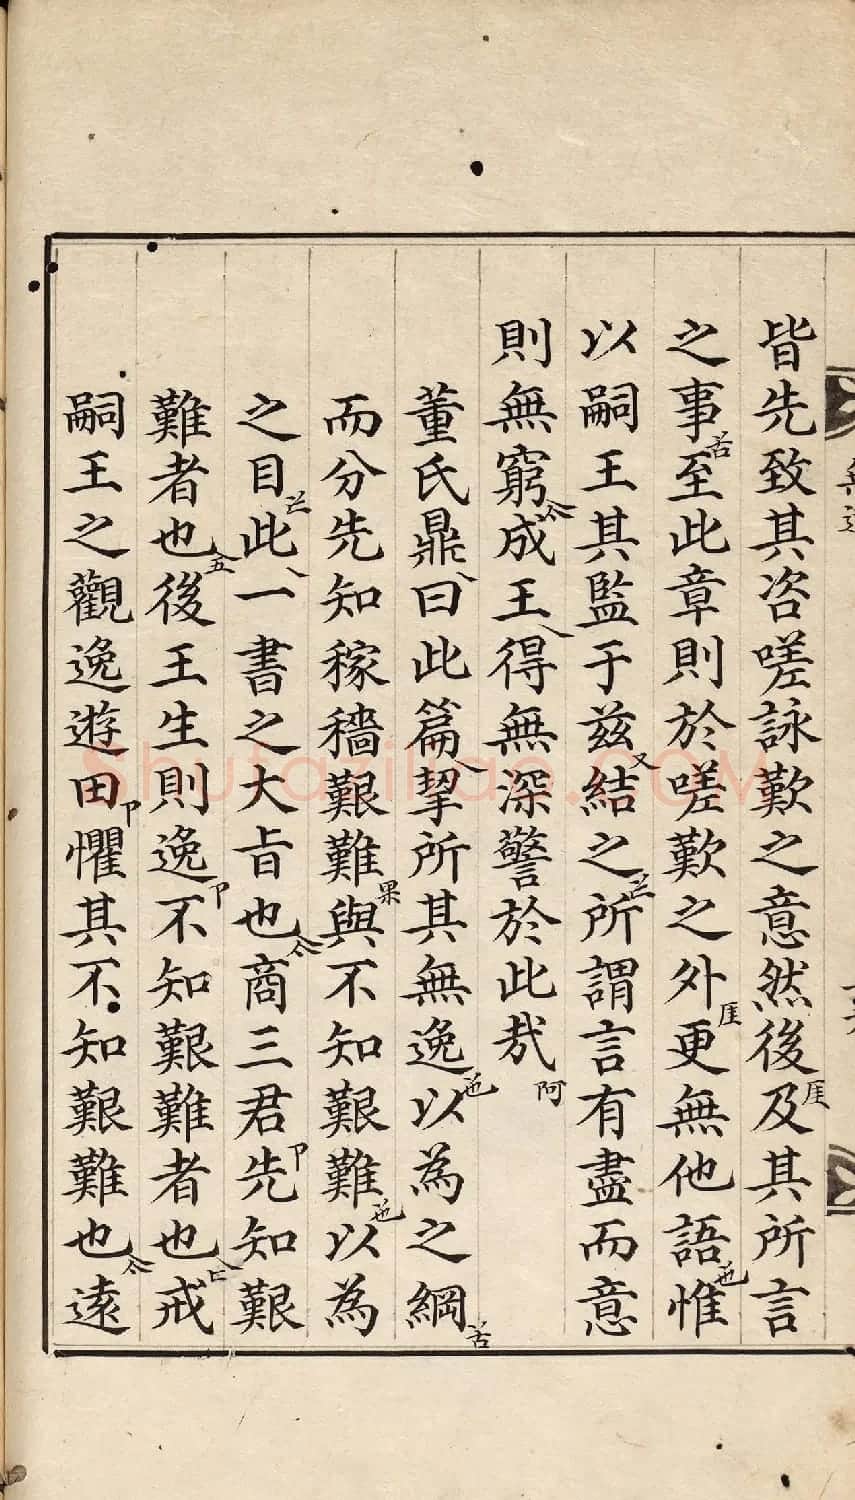 皆先致其咨嗟詠歎之意然後及其所言
之事至此章則於嗟歎之外更無他語惟
以嗣王其監于茲結之所謂言有盡而意
則無窮成王得無深警於此哉
董氏鼎曰此篇挈所其無逸以為之綱
而分先知稼穡艱難與不知艱難以為
之目此一書之大旨也商三君先知艱
難者也後王生則逸不知艱難者也戒
嗣王之觀逸遊田懼其不知艱難也遠
shufaziliao.COM